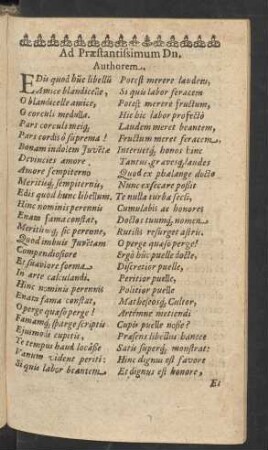 Ad Præstantissimum Dn.
Authorem.
EDis quod hûc libellũ
Amice blandicelle,
O blandicelle amice,
O corculi medulla.
Pars corculi meiq,
Pars cordis ô suprema!
Bonam indolem Juvẽtæ
Devincies amore
Amore sempiterno
Meritisq, sempiternis,
Edis quod hunc libellum.
Hinc nominis perennis
Enata fama constat,
Meritisq, sic perenne,
Quod imbuis Juvẽtam
Compendiosiore
Et suaviore forma
In arte calculandi,
Hinc nominis perennis
Enata fama constat,
O perge quæso perge!
Famamq, sparge scriptis
Ejusmodi cupitis,
Te tempus haud locâsse
Vanum vident periti:
Si quis labor beantem
Potest merere laudem,
Si quis labor feracem
Potest merere fructum,
Hic hic labor profectò
Laudem meret beantem,
Fructum meret feracem.
Interseq, honos hinc
Tantus, gravesq, laudes
Quod ex phalange docto
Nunc exsecare possit
Te nulla turba secli,
Cumulabis ac honores
Doctos tuumq, nomen
Rursus resurget astris.
O perge quæso perge!
Ergò huc puelle docte,
Discretior puelle,
Peritior puelle,
Politior puelle
Matheseosq, Cultor,
Artémne metiendi
Cupis puelle nosse?
Præsens libellus hancce
Satis superq, monstrat:
Hinc dignus est favore
Et dignus est honore,
Et